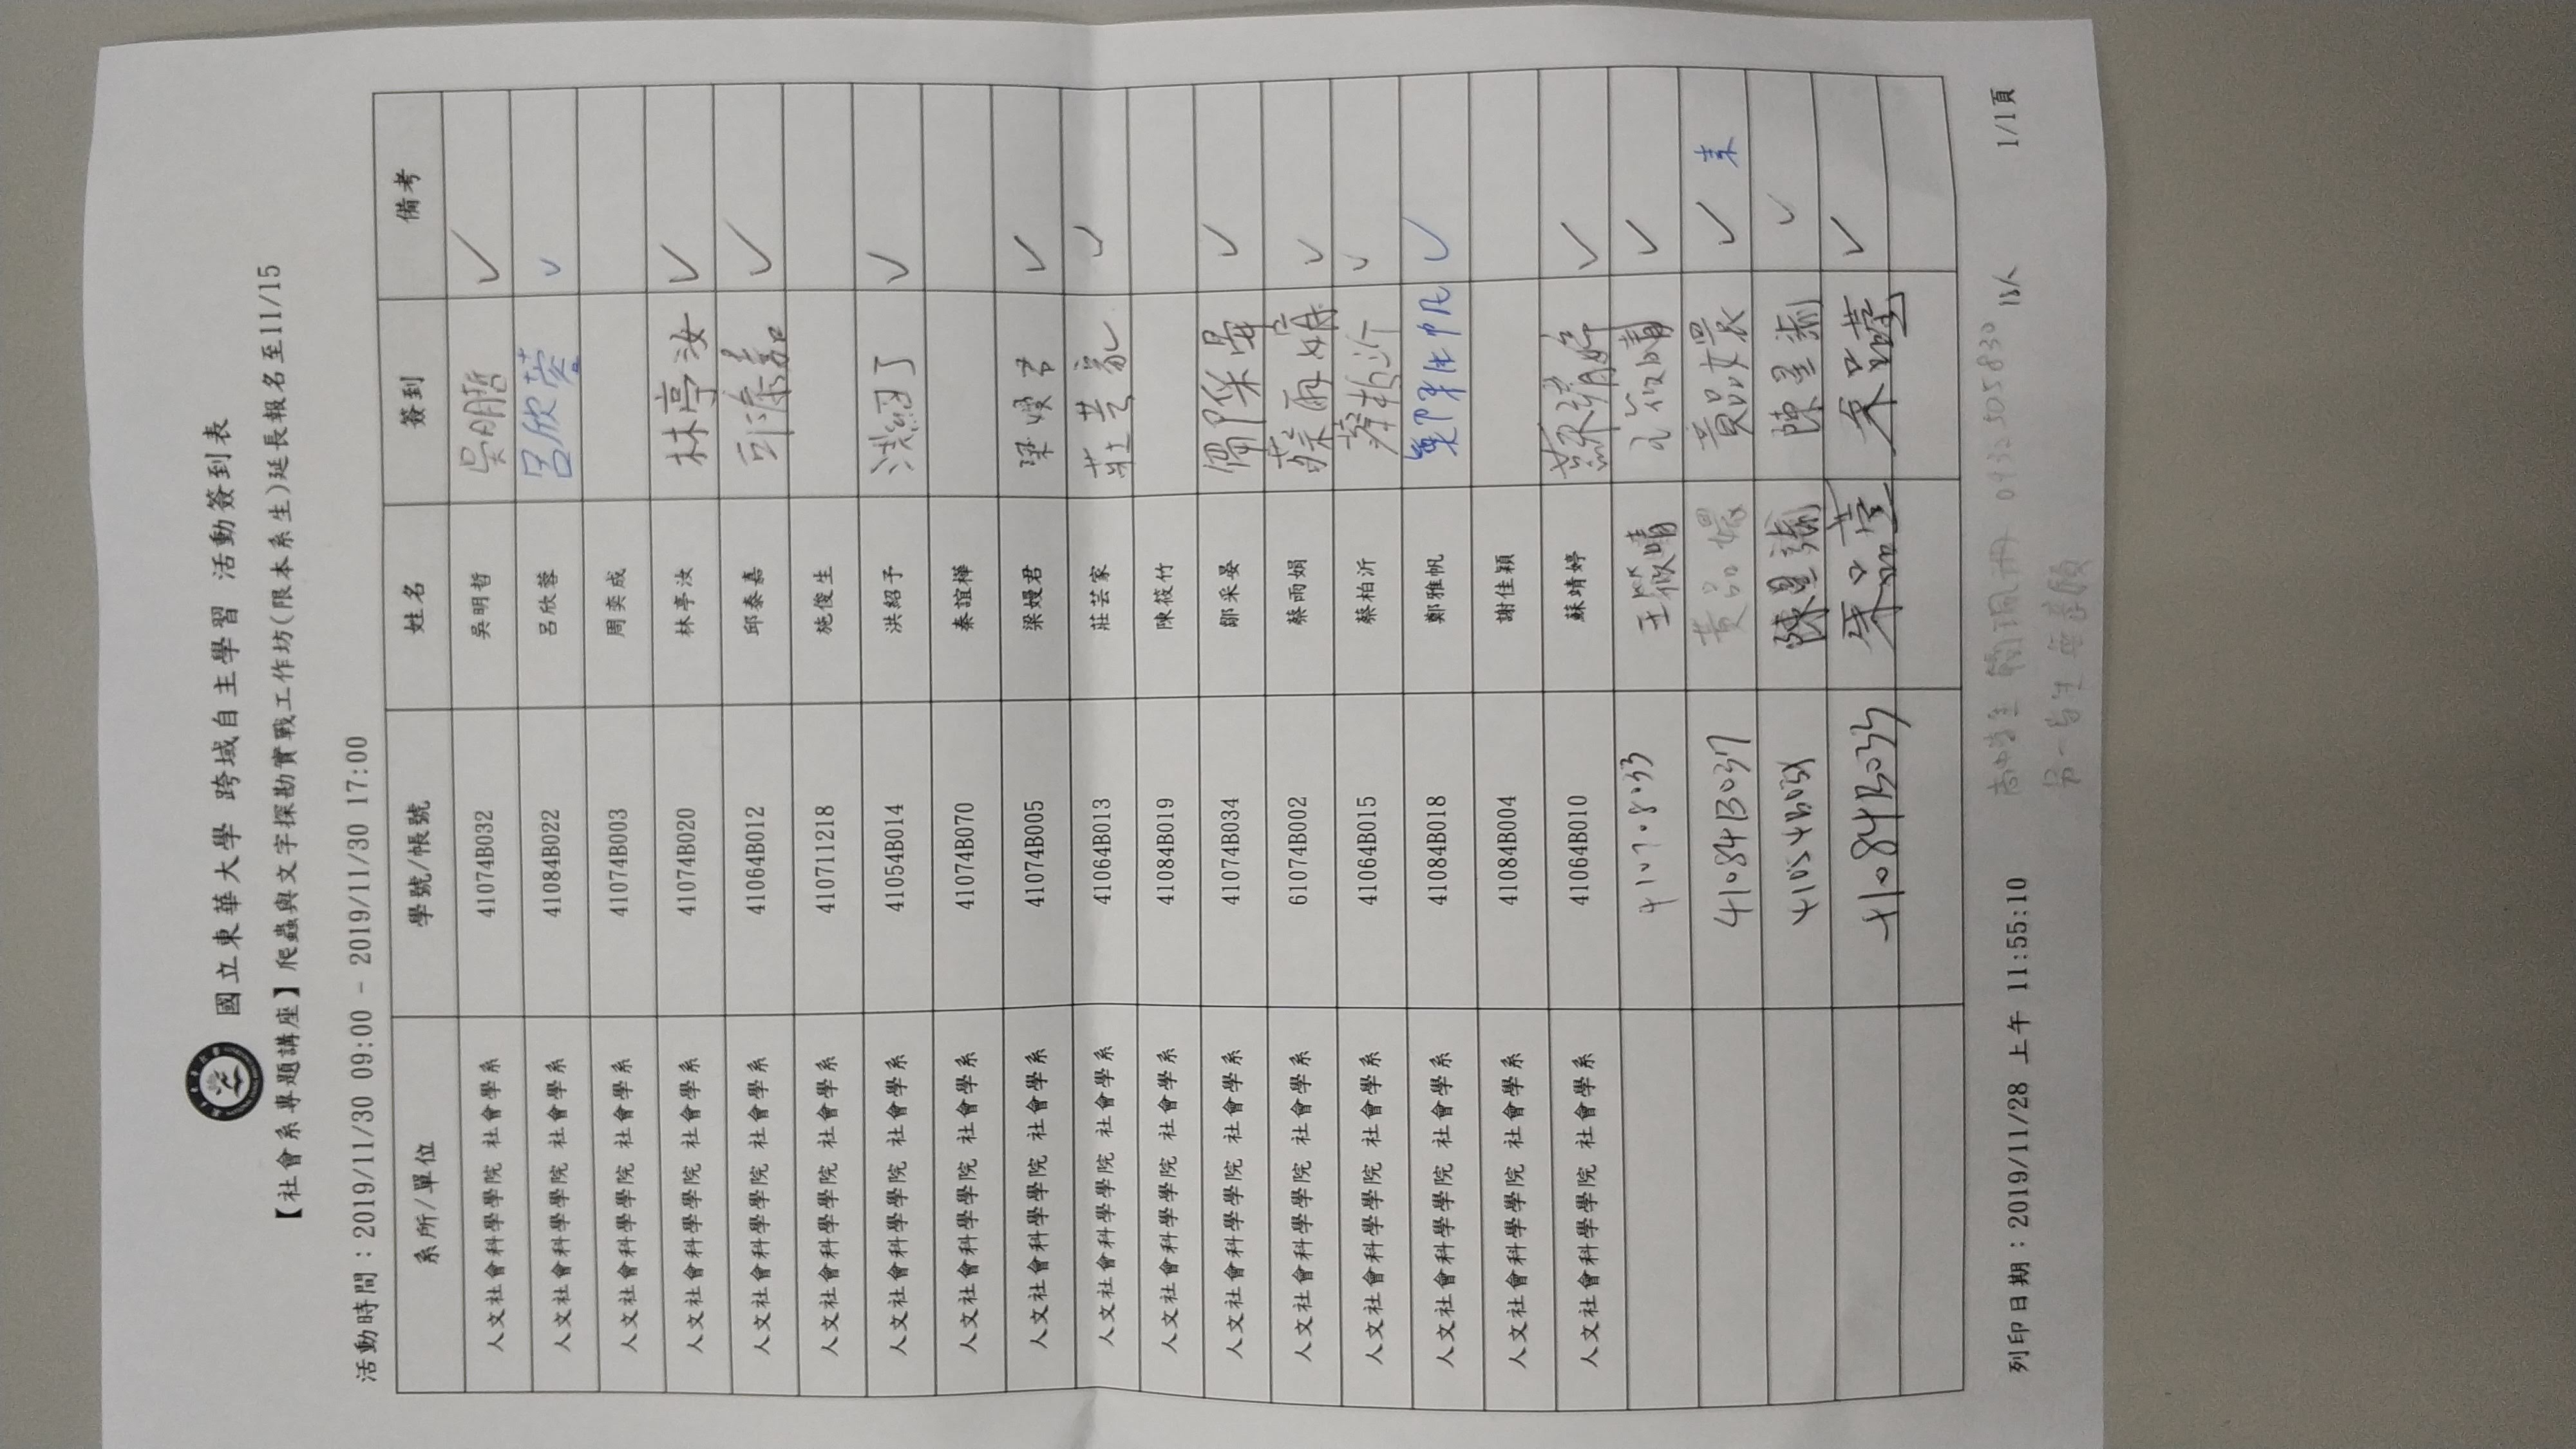 國立東華大學 跨域自主學習 活動簽到表
【社會系專題講座】爬蟲與文字探勘實戰工作坊(限本系生)延長報名至11/15
活動時間：2019/11/30 09:00 - 2019/11/30 17:00
系所/單位 學號/帳號 姓名 簽到 備考
人文社會科學學院 社會學系 41074B032 吳明哲 吳明哲 ✓
人文社會科學學院 社會學系 41084B022 呂欣蓉 呂欣蓉 ✓
人文社會科學學院 社會學系 41074B003 周奕成
人文社會科學學院 社會學系 41074B020 林亭汝 林亭汝 ✓
人文社會科學學院 社會學系 41064B012 邱泰嘉 邱泰嘉 ✓
人文社會科學學院 社會學系 410711218 施俊生
人文社會科學學院 社會學系 41054B014 洪紹予 洪紹予 ✓
人文社會科學學院 社會學系 41074B070 秦誼樺
人文社會科學學院 社會學系 41074B005 梁嫚君 梁嫚君 ✓
人文社會科學學院 社會學系 41064B013 莊芸家 莊芸家 ✓
人文社會科學學院 社會學系 41084B019 陳筱竹
人文社會科學學院 社會學系 41074B034 鄒采晏 鄒采晏 ✓
人文社會科學學院 社會學系 61074B002 蔡雨娟 蔡雨娟 ✓
人文社會科學學院 社會學系 41064B015 蔡柏沂 蔡柏沂 ✓
人文社會科學學院 社會學系 41084B018 鄭雅帆 鄭雅帆 ✓
人文社會科學學院 社會學系 41084B004 謝佳穎
人文社會科學學院 社會學系 41064B010 蘇靖婷 蘇靖婷 ✓
410708033 王筱晴 王筱晴 ✓
41084B037 黃品嬛 黃品嬛 ✓
陳星諭 陳星諭 ✓
41084B033 朱品萱 朱品萱 ✓
列印日期：2019/11/28 上午 11:55:10 0932505830 1/1頁